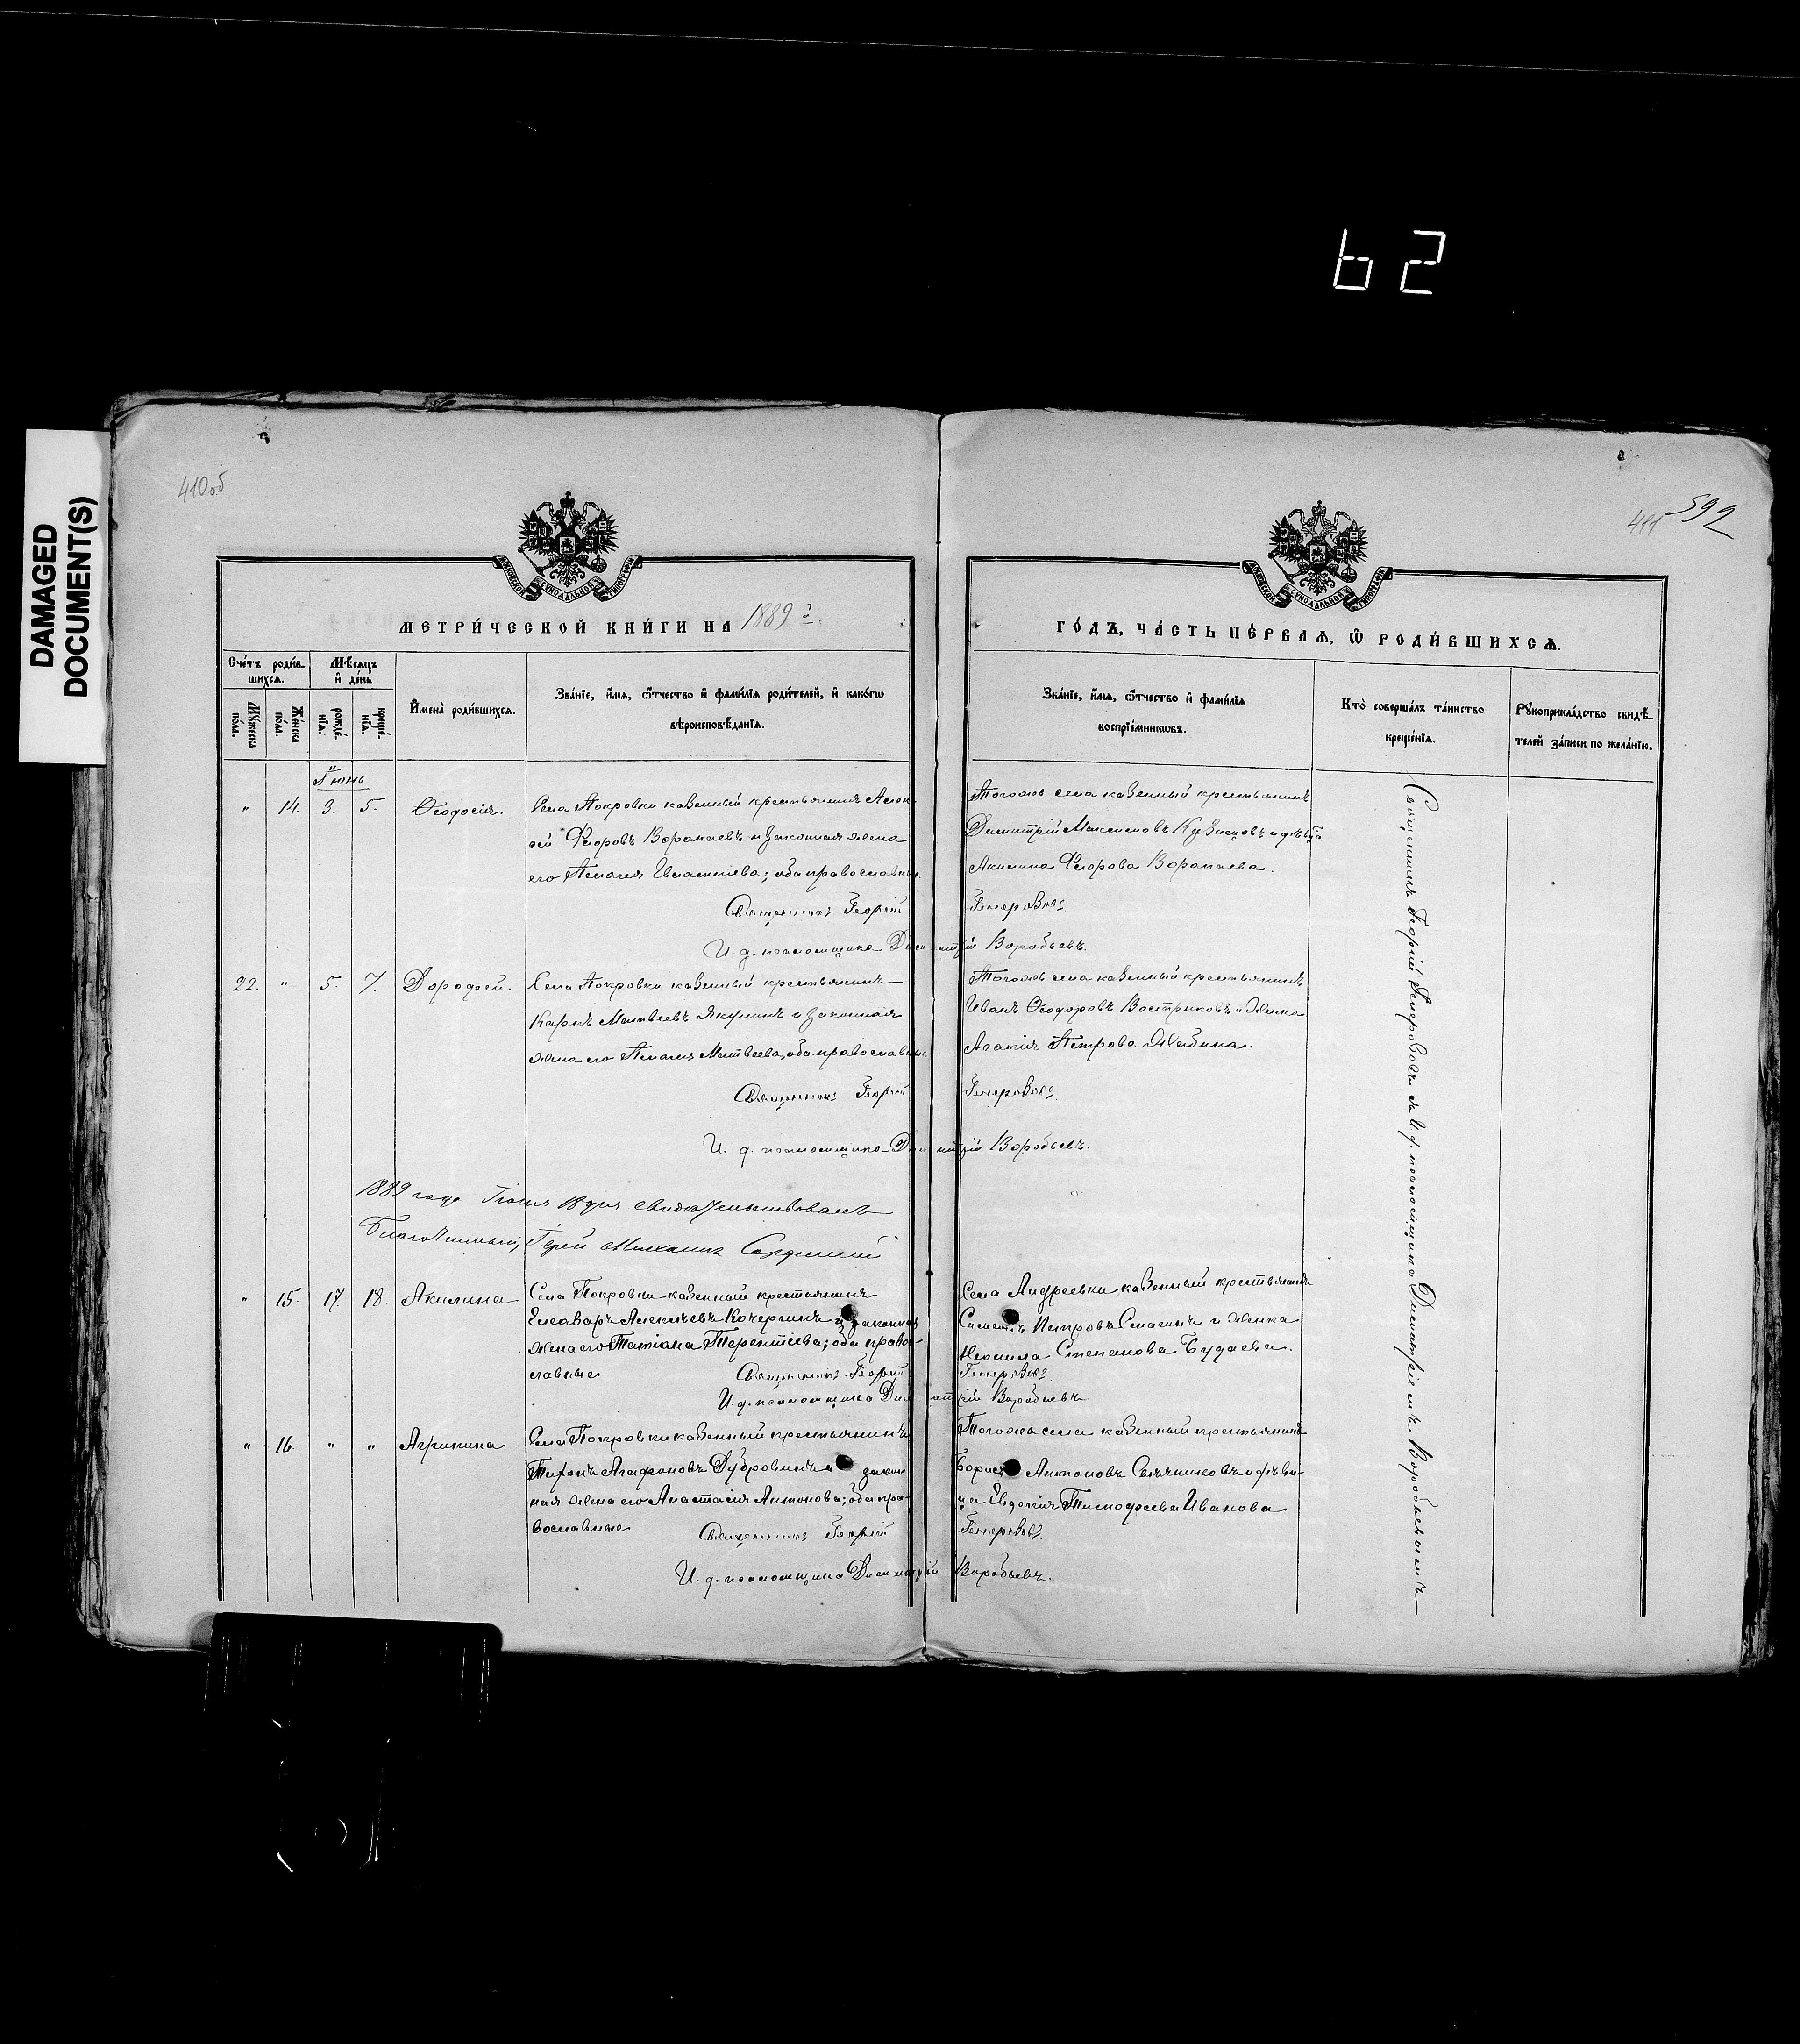 62
DAMAGED
DOCUMENT(S)
410об
411 592
МОСКОВСКОЙ СѴНОДАЛЬНОЙ ТИПОГРАФІИ
МОСКОВСКОЙ СѴНОДАЛЬНОЙ ТИПОГРАФІИ
МЕТРИ́ЧЕСКОЙ КНИ́ГИ НА 1889 й
ГО́ДЪ, ЧА́СТЬ ПЕ́РВАѦ, Ѡ҆ РОДИ́ВШИХСѦ.
Сче́тъ роди́в-
шихсѧ.
Мѣ́сѧцъ
и҆ де́нь
Мꙋ́жеска
по́ла.
Же́нска
по́ла.
рожде́-
нїѧ.
креще́-
нїѧ.
И҆мена̀ роди́вшихсѧ.
Зва́нїе, и҆́мѧ, ѻ҆́тчество и҆ фами́лїѧ роди́телей, и҆ како́гѡ
вѣроисповѣ́данїѧ.
Зва́нїе, и҆́мѧ, ѻ҆́тчество и҆ фами́лїѧ
воспрїе́мникѡвъ.
Кто̀ соверша́лъ та́инство
креще́нїѧ.
Рꙋкоприкла́дство свидѣ́-
телей за́писи по жела́нїю.
Іюнь
" 14. 3. 5. Ѳеодосія.
Села Покровки казенный крестьянинъ Алек-
сей Флоровъ Воропаевъ и законная жена
его Пелагея Игнатіева; оба православны.
Священникъ Георгій
И. д. псаломщика Димитрій Воробьевъ.
Тогожъ села казенный крестьянинъ
Димитрій Максимовъ Кузнецовъ и дѣвица
Акилина Флорова Воропаева.
22. " 5. 7. Дорофей.
Села Покровки казенный крестьянинъ
Карпъ Матвѣевъ Якунинъ и законная
жена его Пелагея Матвеева, оба православны.
Священникъ Георгій
И. д. псаломщика Димитрій Воробьевъ.
Тогожъ села казенный крестьянинъ
Иванъ Ѳеодоровъ Востриковъ и женка
Агапія Петрова
1889 года Іюня 18 дня свидѣтельствовалъ
Благочинный, Іерей Михаилъ
" 15. 17. 18. Акилина
Села Покровки казенный крестьянинъ
Елеазаръ Алексѣевъ Кочергинъ и законная
жена его Татіана Терентіева; оба право-
славные Священникъ Георгій
И. д. псаломщика Димитрій Воробьевъ
Села Андреевки казенный крестьянинъ
Симеонъ Петровъ Смагинъ и женка
Неонила Степанова Будаева.
" 16. " " Агрипина
Села Покровки казенный крестьянинъ
Тихонъ Агафоновъ Дубровинъ и закон-
ная жена его Анастасія Антонова; оба пра-
вославные Священникъ Георгій
И. д. псаломщика Димитрій Воробьевъ.
Тогожъ села казенный крестьянинъ
Борисъ Антоновъ и дѣви-
ца Евдокія Тимофеева Иванова
Священникъ Георгій съ И. д. псаломщика Димитріемъ Воробьевымъ